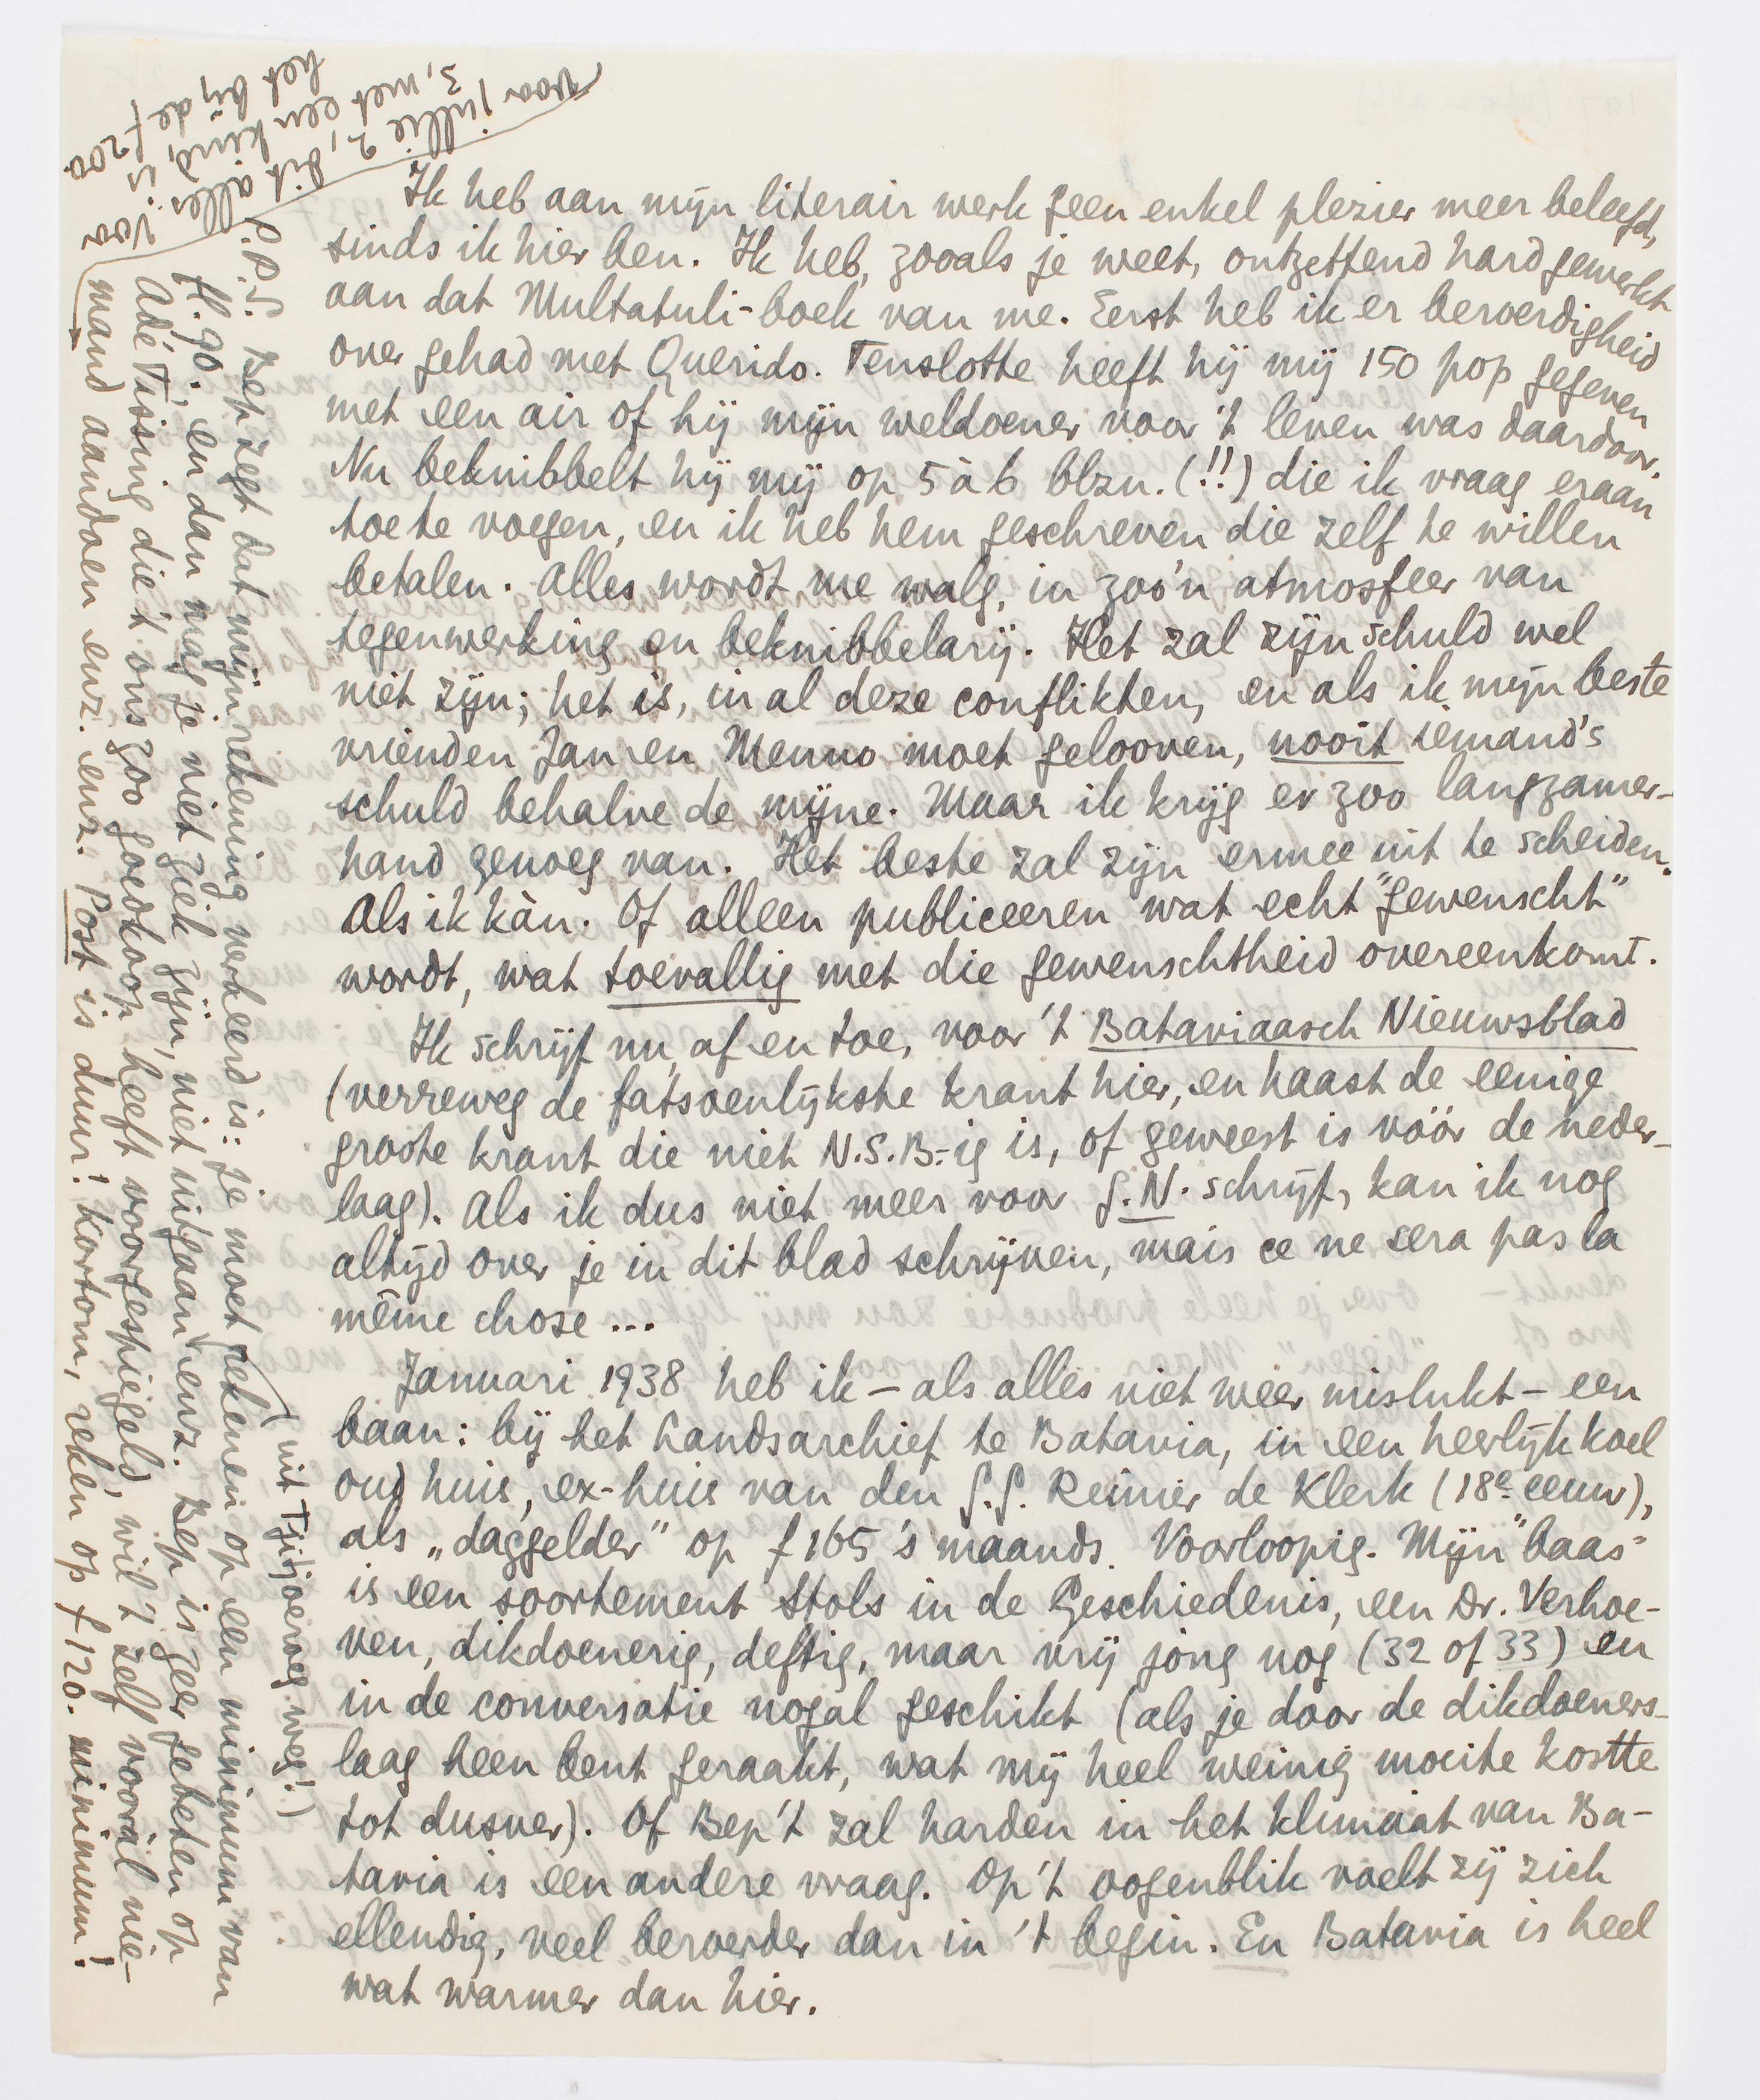 Ik heb aan mijn literair werk geen enkel plezier meer beleefd,
sinds ik hier ben. Ik heb, zooals je weet, ontzettend hard gewerkt
aan dat Multatuli-boek van me. Eerst heb ik er beroerdigheid
over gehad met Querido. Tenslotte heeft hij mij 150 pop gegeven
met een air of hij mijn weldoener voor 't leven was daardoor.
Nu beknibbelt hij mij op 5 à 6 blzn. (!!) die ik vraag eraan
toe te voegen, en ik heb hem geschreven die zelf te willen
betalen. Alles wordt me walg, in zoo'n atmosfeer van
tegenwerking en beknibbelarij. Het zal zijn schuld wel
niet zijn; het is, in al deze conflikten, en als ik mijn beste
vrienden Jan en Menno moet gelooven, nooit iemand's
schuld behalve de mijne. Maar ik krijg er zoo langzamer-
hand genoeg van. Het beste zal zijn ermee uit te scheiden.
Als ik kàn. Of alleen publiceeren wat echt "gewenscht"
wordt, wat toevallig met die gewenschtheid overeenkomt.
Ik schrijf nu, af en toe, voor 't Bataviaasch Nieuwsblad
(verreweg de fatsoenlijkste krant hier, en haast de eenige
groote krant die niet N.S.B.-ig is, of geweest is vóór de neder-
laag). Als ik dus niet meer voor G.N. schrijf, kan ik nog
altijd over je in dit blad schrijven, mais ce ne sera pas la
même chose ...
Januari 1938 heb ik – als alles niet weer mislukt – een
baan: bij het Landsarchief te Batavia, in een heerlijk koel
oud huis, ex-huis van den G.G. Reinier de Klerk (18e eeuw),
als „daggelder" op f 165 's maands. Voorloopig. Mijn "baas"
is een soortement Stols in de Geschiedenis, een Dr. Verhoe-
ven, dikdoenerig, deftig, maar vrij jong nog (32 of 33) en
in de conversatie nogal geschikt (als je door de dikdoeners-
laag heen bent geraakt, wat mij heel weinig moeite kostte
tot dusver). Of Bep 't zal harden in het klimaat van Ba-
tavia is een andere vraag. Op 't oogenblik voelt zij zich
ellendig, veel beroerder dan in 't begin. En Batavia is heel
wat warmer dan hier.
P.P.S. Bep zegt dat mijn rekening verkeerd is: je moet rekenen op een minimum van
f 90.; en dan mag je niet ziek zijn, niet uitgaan (uit Tjitjoeroeg weg!) enz. Bep is zeer gebeten op
Adé Tissing die 't ons zoo goedkoop heeft voorgespiegeld, wil 't zelf vooràl nie-
mand aandoen enz. enz. Post is duur! Kortom, reken op f 120. minimum!
voor jullie 2, dit alles. Voor
3, met een kind, is
het bij de f 200